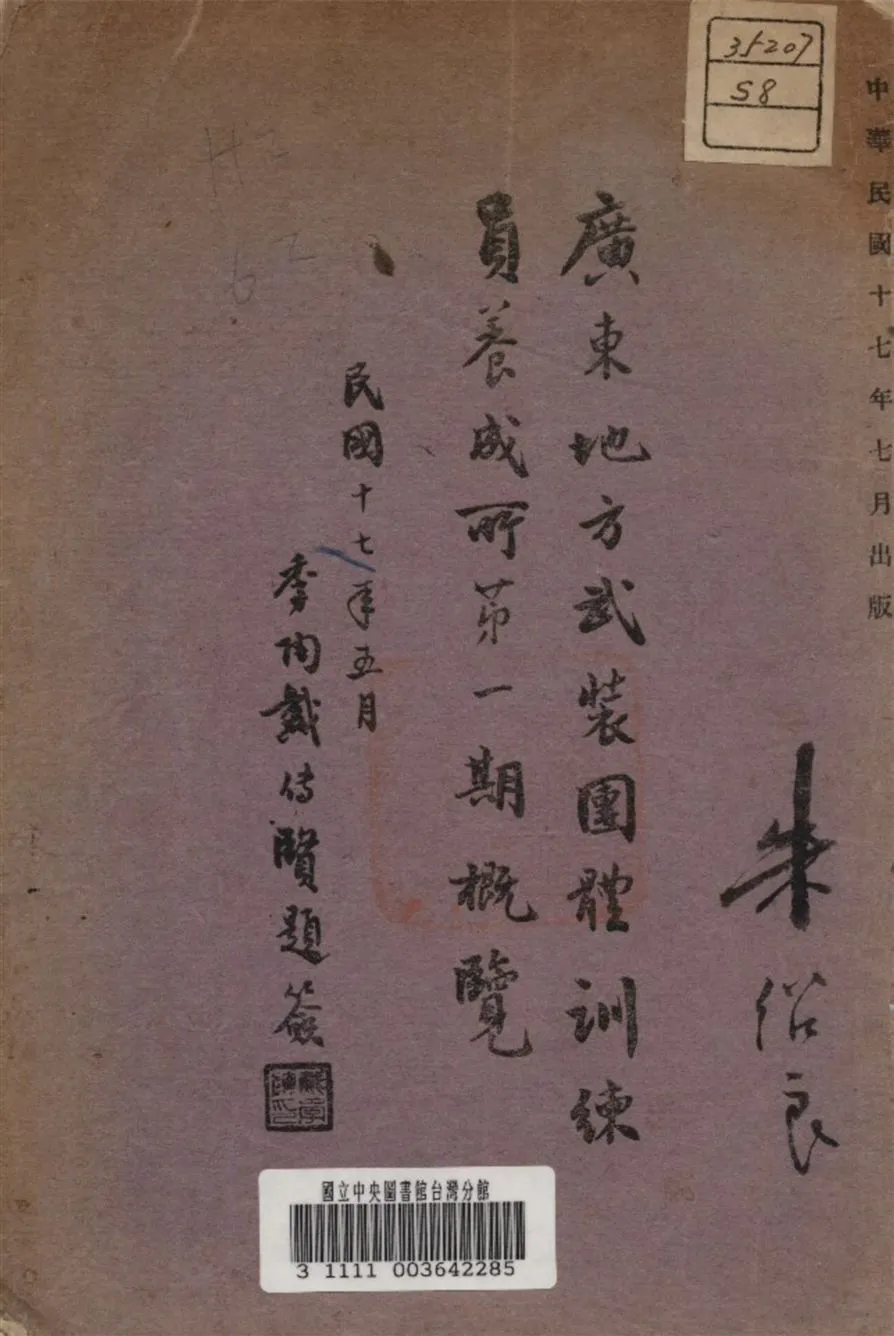 35207
58
中華民國十七年七月出版
朱紹良
廣東地方武裝團體訓練
員養成所苐一期概覽
民國十七年五月
季陶戴傳賢題簽
國立中央圖書館台灣分館
3 1111 003642285